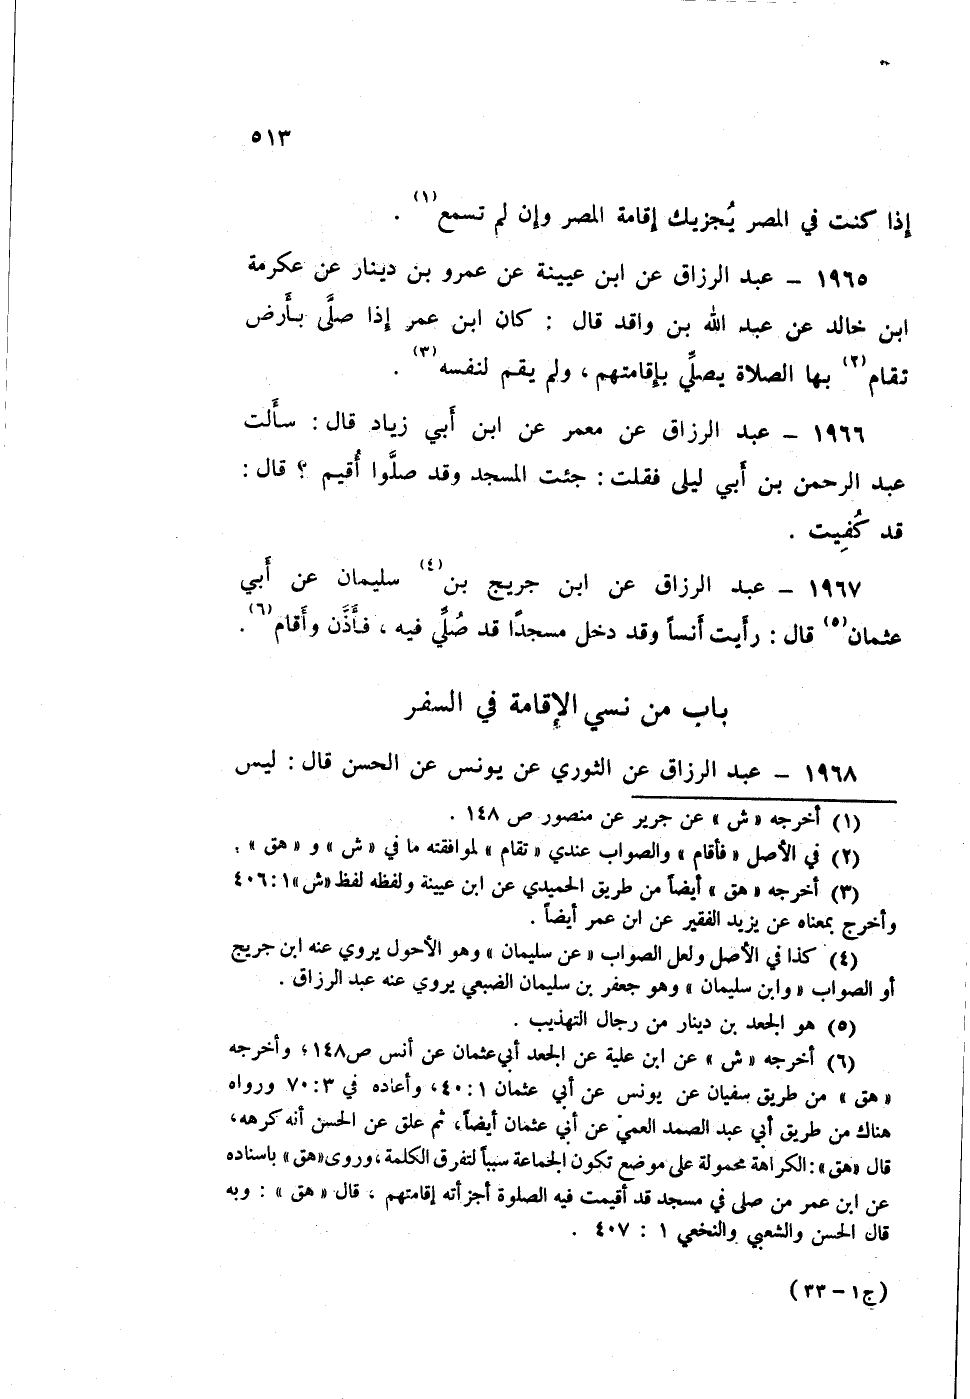 ٥١٣
إذا كنت في المصر يُجزيك إقامة المصر وإن لم تسمع(١) .
١٩٦٥ – عبد الرزاق عن ابن عيينة عن عمرو بن دينار عن عكرمة
ابن خالد عن عبد الله بن واقد قال : كان ابن عمر إذا صلَّى بأَرض
تقام(٢) بها الصلاة يصلِّي بإقامتهم ، ولم يقم لنفسه(٣) .
١٩٦٦ – عبد الرزاق عن معمر عن ابن أَبي زياد قال : سأَلت
عبد الرحمن بن أَبي ليلى فقلت : جئت المسجد وقد صلَّوا أُقيم ؟ قال :
قد كُفِيت .
١٩٦٧ – عبد الرزاق عن ابن جريج بن(٤) سليمان عن أَبي
عثمان(٥) قال : رأَيت أَنساً وقد دخل مسجدًا قد صُلِّي فيه ، فأَذَّن وأَقام(٦) .
باب من نسي الإقامة في السفر
١٩٦٨ – عبد الرزاق عن الثوري عن يونس عن الحسن قال : ليس
(١) أخرجه « ش » عن جرير عن منصور ص ١٤٨ .
(٢) في الأصل « فأقام » والصواب عندي « تقام » لموافقته ما في « ش » و « هق » .
(٣) أخرجه « هق » أيضاً من طريق الحميدي عن ابن عيينة ولفظه لفظ «ش» ١ : ٤٠٦
وأخرج بمعناه عن يزيد الفقير عن ابن عمر أيضاً .
(٤) كذا في الأصل ولعل الصواب « عن سليمان » وهو الأحول يروي عنه ابن جريج
أو الصواب « وابن سليمان » وهو جعفر بن سليمان الضبعي يروي عنه عبد الرزاق .
(٥) هو الجعد بن دينار من رجال التهذيب .
(٦) أخرجه « ش » عن ابن علية عن الجعد أبي عثمان عن أنس ص١٤٨، وأخرجه
« هق » من طريق سفيان عن يونس عن أبي عثمان ١ : ٤٠، وأعاده في ٣ : ٧٠ ورواه
هناك من طريق أبي عبد الصمد العمي عن أبي عثمان أيضاً، ثم علق عن الحسن أنه كرهه،
قال «هق»: الكراهة محمولة على موضع تكون الجماعة سبباً لتفرق الكلمة، وروى «هق» باسناده
عن ابن عمر من صلى في مسجد قد أقيمت فيه الصلوة أجزأته إقامتهم ، قال « هق » : وبه
قال الحسن والشعبي والنخعي ١ : ٤٠٧ .
(ج١ – ٣٣)